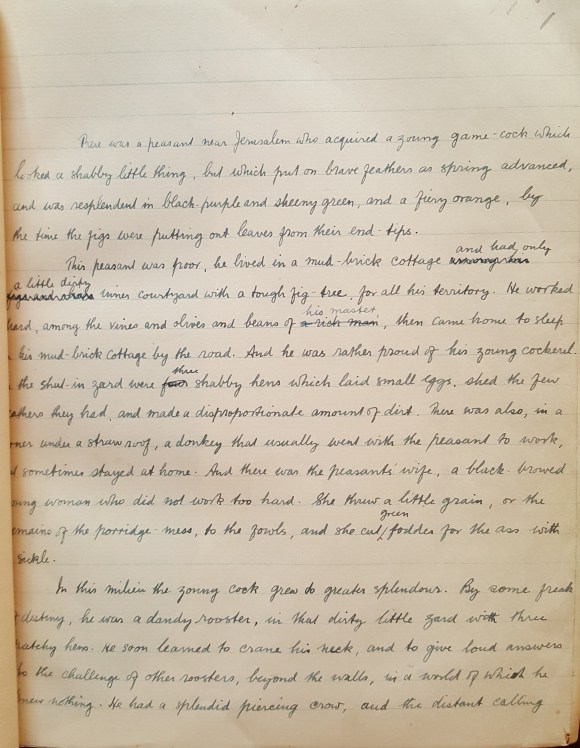 There was a peasant near Jerusalem who acquired a young game-cock which
looked a shabby little thing, but which put on brave feathers as spring advanced,
and was resplendent in black-purple and sheeny green, and a fiery orange, by
the time the figs were putting out leaves from their end-tips.
This peasant was poor, he lived in a mud-brick cottage and had only
a little dirty inner courtyard with a tough fig-tree, for all his territory. He worked
hard, among the vines and olives and beans of his master a rich man, then came home to sleep
his mud-brick cottage by the road. And he was rather proud of his young cockerel.
the shut-in yard were three four shabby hens which laid small eggs, shed the few
athers they had, and made a disproportionate amount of dirt. There was also, in a
rner under a straw roof, a donkey that usually went with the peasant to work,
sometimes stayed at home. And there was the peasants' wife, a black-browed
oung woman who did not work too hard. She threw a little grain, or the
emains of the porridge-mess, to the fowls, and she cut green fodder for the ass with
sickle.
In this milieu the young cock grew to greater splendour. By some freak
destiny, he was a dandy rooster, in that dirty little yard with three
patchy hens. He soon learned to crane his neck, and to give loud answers
to the challenge of other roosters, beyond the walls, in a world of which he
knew nothing. He had a splendid piercing crow, and the distant calling